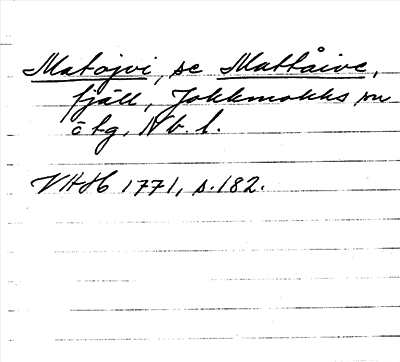 Matojvi, se Mattåive,
fjäll, Jokkmokks sn
ö lg, Nb. l.
VHAH 1771, s. 182.